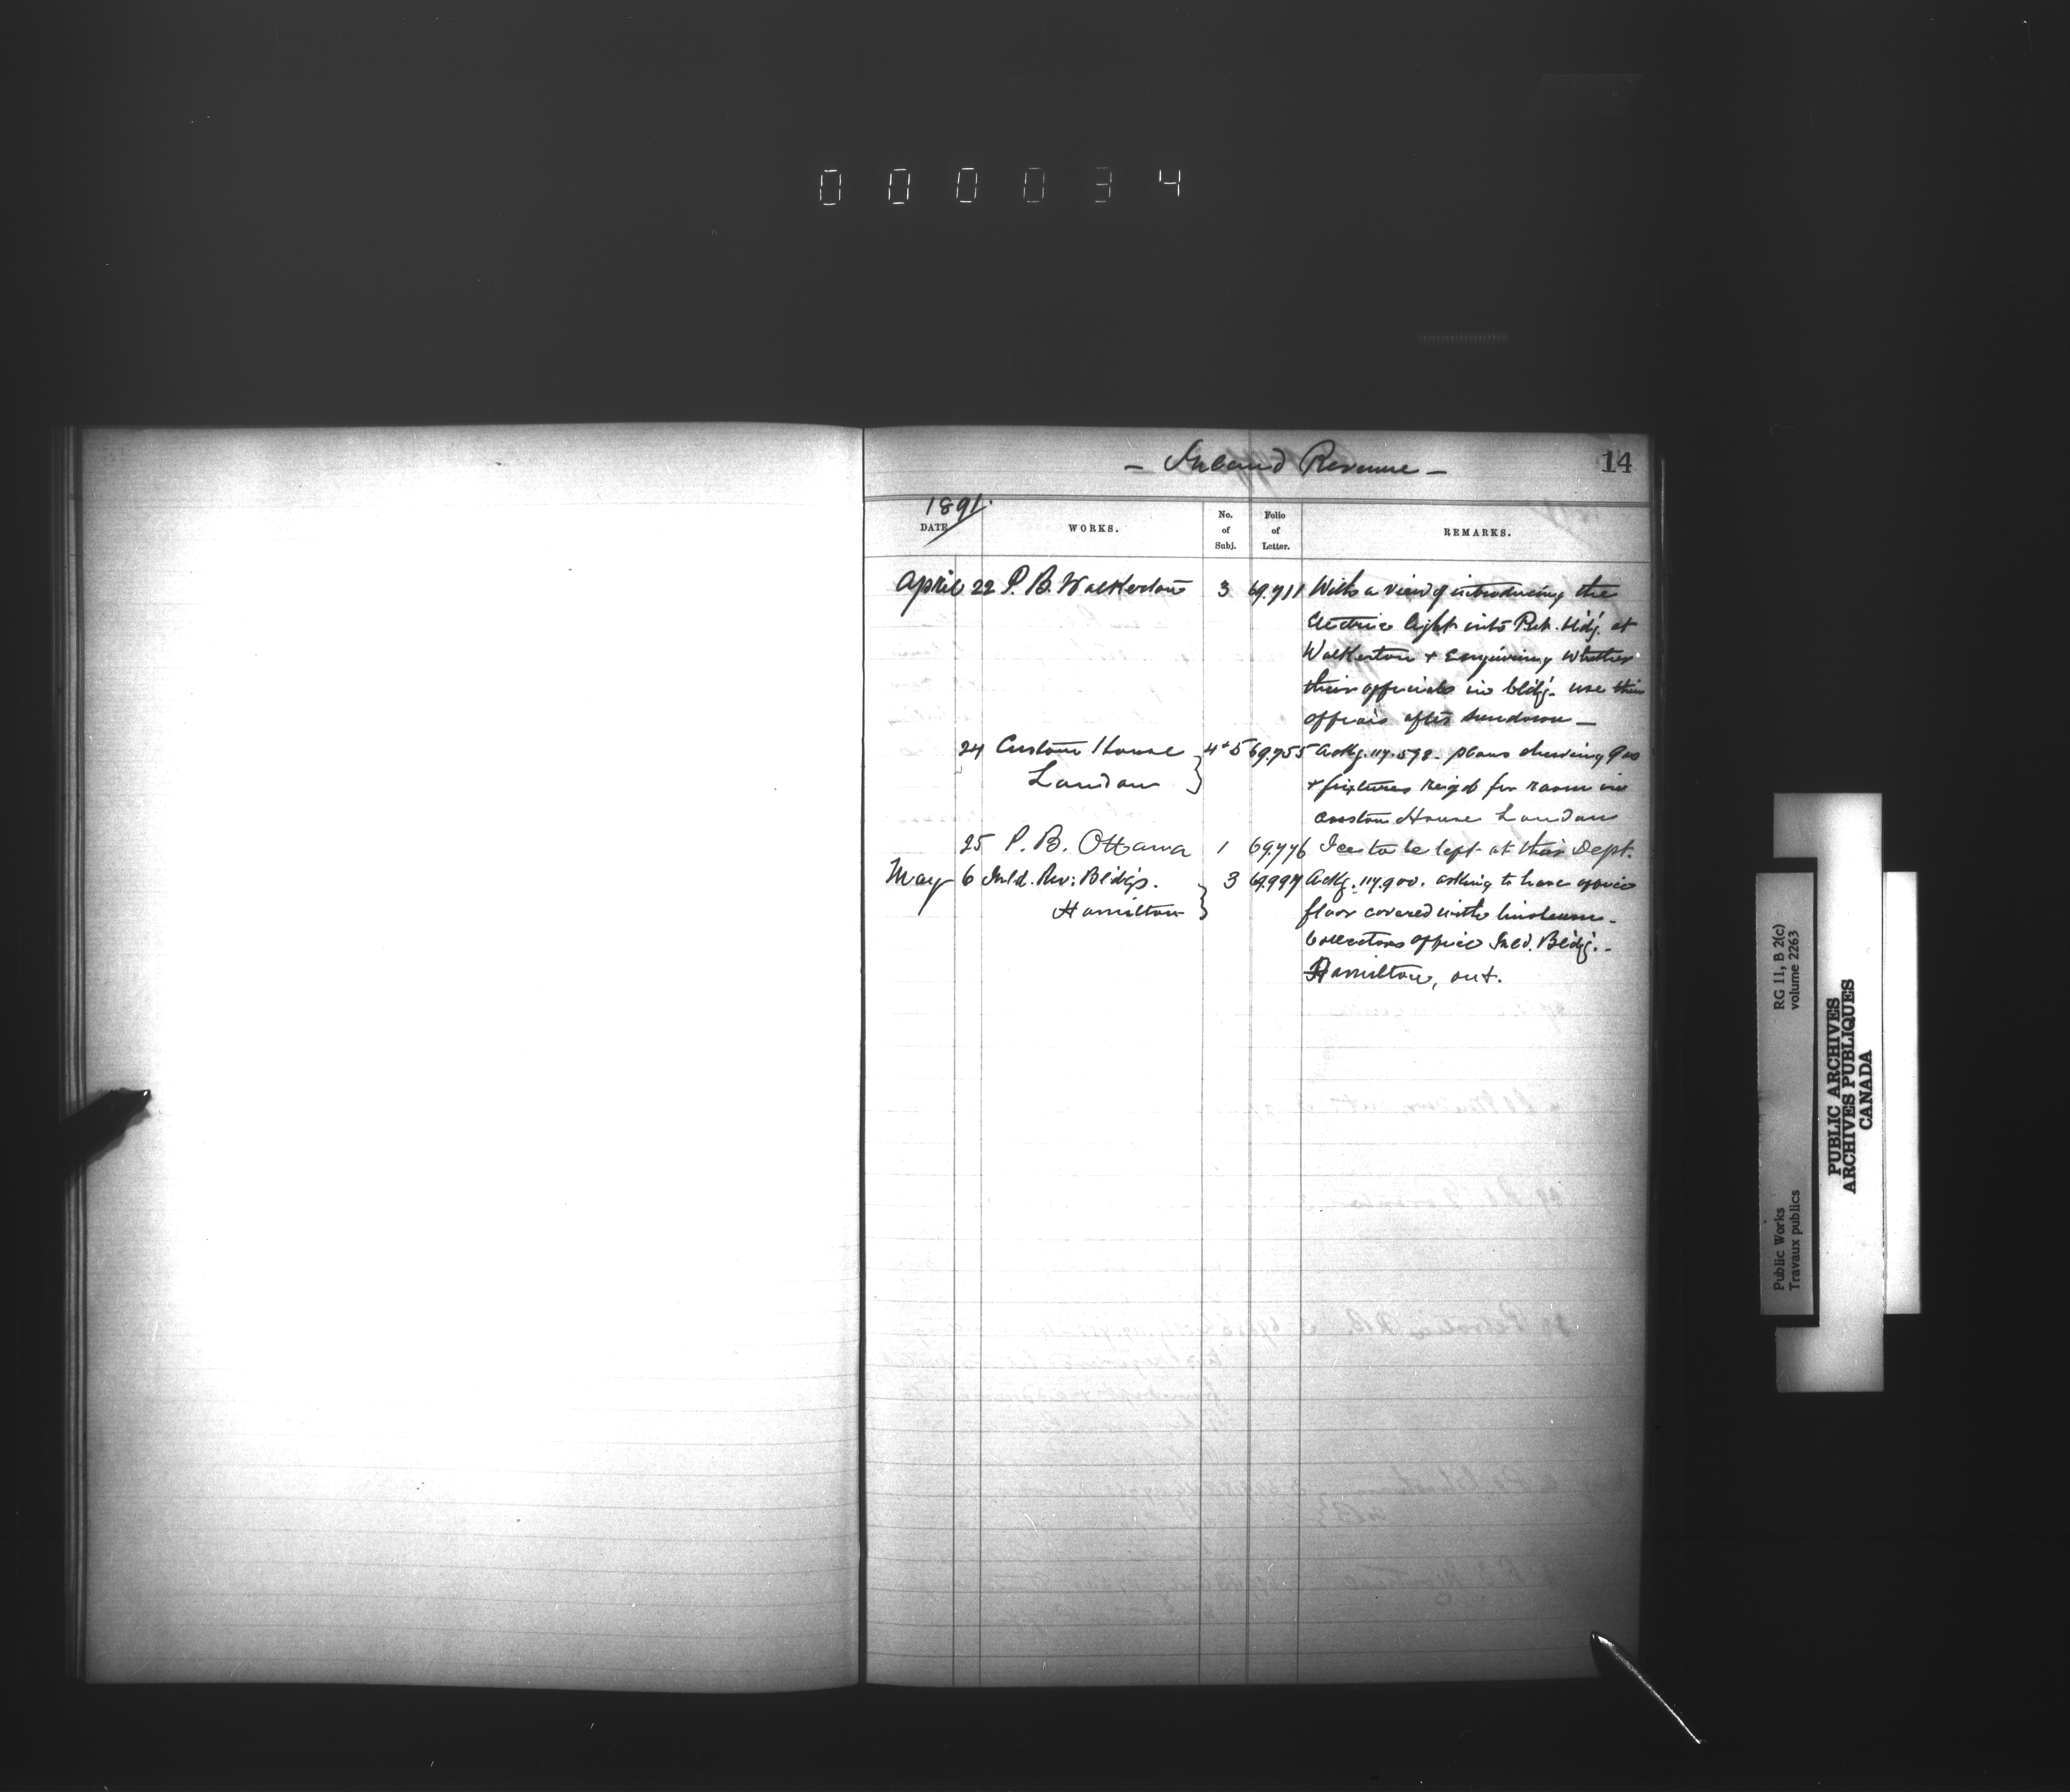 000034
- Inland Revenue -
14
1891.
DATE
WORKS.
No. of Subj.
Folio of Letter.
REMARKS.
April 22 P. B. Walkerton 3 69.711 With a view of introducing the
Electric light into Pub. bldg. at
Walkerton + Enquiring whether
their officials in bldg. use their
offices after sundown —
24 Custom House 4+5 69.755 Ackg. 117.598. plans showing gas
London
+ fixtures reqd for room in
Custom House London
25 P. B. Ottawa 1 69.776 Ice to be left at their Dept.
May 6 Inld. Rev: Bldgs. 3 69.997 Ackg. 117.900. asking to have office
Hamilton
floor covered with linoleum -
Collectors office Inld. Bldg. -
Hamilton, ont.
Public Works
Travaux publics
RG 11, B 2(c)
volume 2263
PUBLIC ARCHIVES
ARCHIVES PUBLIQUES
CANADA